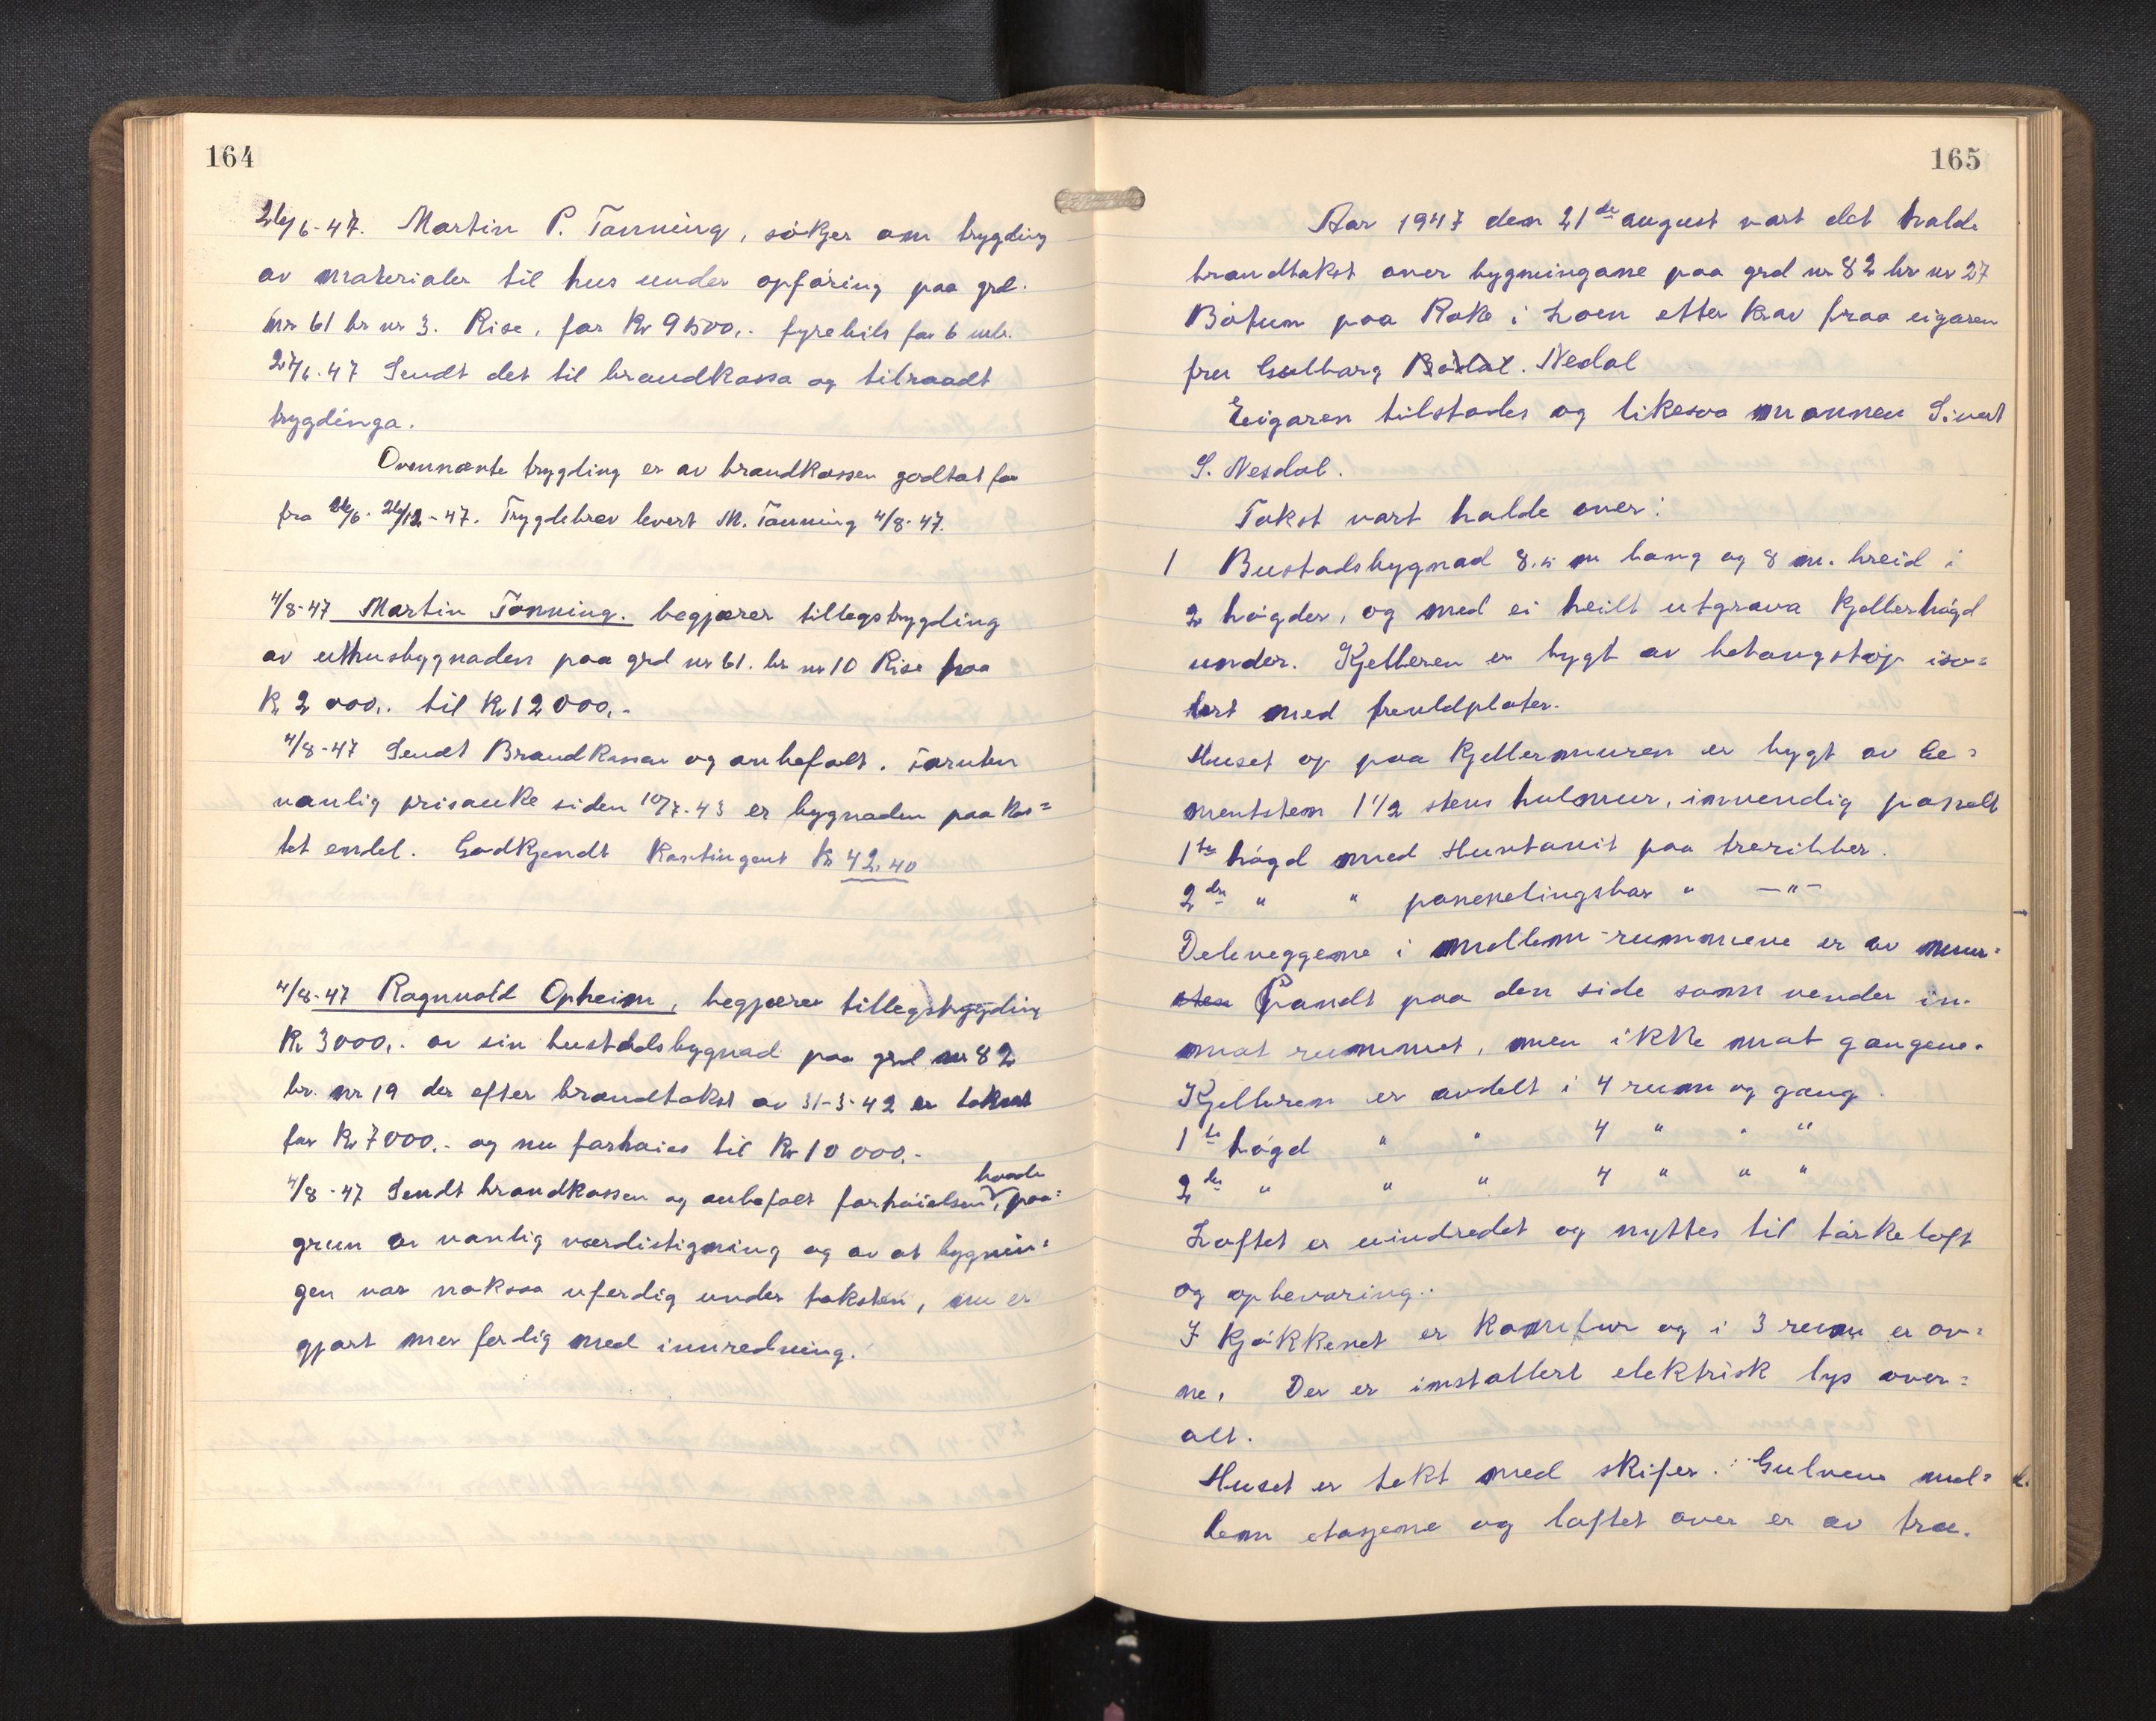 164
26/6-47. Martin P. Tonning, søkjer om trygding
av materialer til hus under opføring paa grd.
nr 61 br nr 3. Rise, for Kr 9500,- fyrebils for 6 md.
27/6-47 Sendt det til brandkassa og tilraadt
trygdinga.
Ovennevnte trygding er av brandkassen godtat for
fra 26/6-26/12-47. Trygdebrev levert M. Tonning 4/8-47.
4/8-47 Martin Tonning. begjærer tillegstrygding
av uthusbygnaden paa grd nr 61. br nr 10 Rise fraa
Kr 2 000,. til Kr 12 000,-
4/8-47 Sendt Brandkassen og anbefalt. Foruten
vanlig prisauke siden 10/7-43 er bygnaden paa kos=
tet endel. Godkjendt Kontingent Kr 42,40
4/8-47 Ragnvald Opheim, begjærer tillegstrygding
Kr 3000,- av sin bustadsbygnad paa grd nr 82
br. nr 19 der efter brandtakst av 31-3-42 er takset
for Kr 7000.- og nu forhøies til Kr 10 000.-
4/8-47 Sendt brandkassen og anbefalt forhøielsen, baade paa=
grun av vanlig værdistigning og av at bygnin=
gen var noksaa uferdig under taksten, nu er
gjort mer ferdig med innredning.
165
Aar 1947 den 21de august vart det halde
brandtakst over bygningane paa grd nr 82 br nr 27
Bøtun paa Rake i Loen etter krav fraa eigaren
fru Gudborg Bødal. Nedal
Eigaren tilstades og likesaa mannen Sivert
S. Nesdal.
Takst vart halde over:
1 Bustadsbygnad 8.5 m lang og 8 m. breid i
2 høgder, og med ei heilt utgrava kjellerhøgd
under. Kjelleren er bygt av betongstøp iso=
lert med freuldplater.
Huset op paa kjellermuren er bygt av ce=
mentsten 1 1/2 stens hulmur, innvendig panelt
1ste høgd med Huntonit paa treribber.
2dre " " panelingsbor " —"—
Deleveggene i mellem rummene er av mur=
sten Pandt paa den side som vender in.
mot rummet, men ikke mot gangene.
Kjelleren er avdelt i 4 rum og gang.
1ste høgd " " 4 " " "
2dre " " " 4 " " "
Loftet er uindredet og nyttes til tørkeloft
og opbevaring.
I kjøkkenet er komfur og i 3 rum er ov=
ne, Der er installert elektrisk lys over=
alt.
Huset er tekt med skifer. Gulvene mel=
lem etasjene og loftet over er av tre.